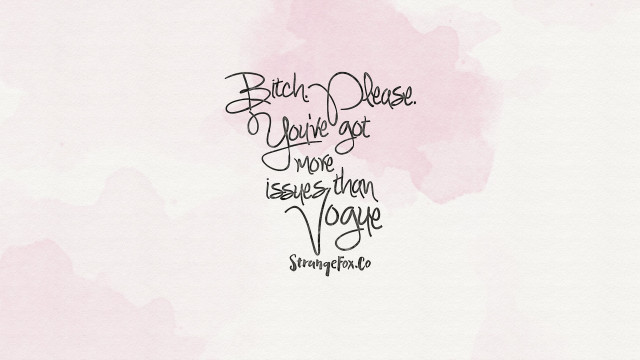 Bitch. Please.
You've got
more
issues than
Vogue
StrangeFox.Co